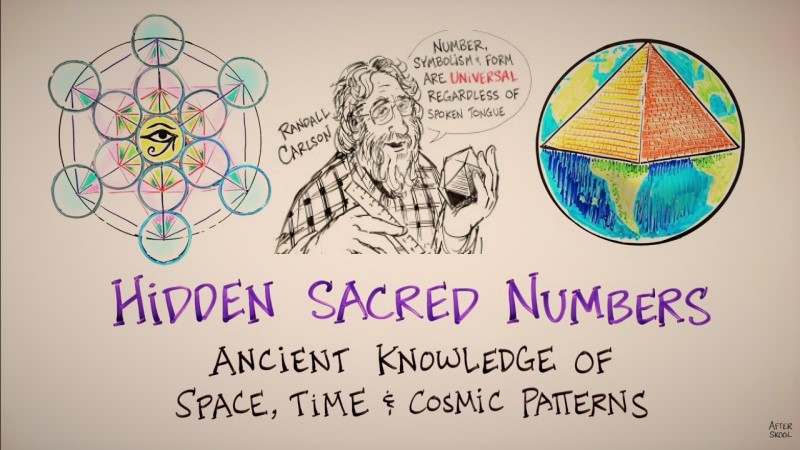 NUMBER,
SYMBOLISM & FORM
ARE UNIVERSAL
REGARDLESS OF
SPOKEN TONGUE
RANDALL
CARLSON
HIDDEN SACRED NUMBERS
ANCIENT KNOWLEDGE OF
SPACE, TIME & COSMIC PATTERNS
AFTER
SKOOL